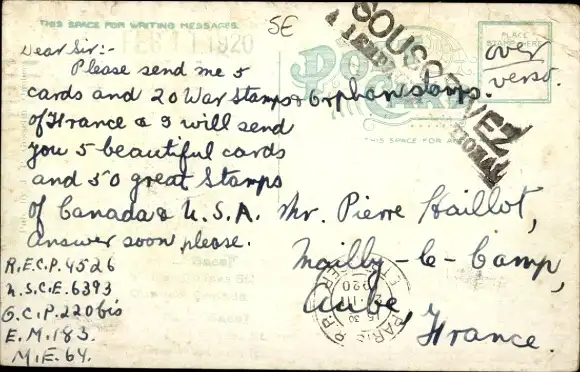 THIS SPACE FOR WRITING MESSAGES.
FEB 11 1920
5E
SOUSCRIVEZ
PLACE
over
verso.
POST
CARD
THIS SPACE FOR
Dear Sir:-
Please send me 5
cards and 20 War Stamps & Orphan stamps.
of France & I will send
you 5 beautiful cards
and 50 great Stamps
of Canada & U.S.A.
Answer soon please.
R.E.C.P. 4526
U.S.C.E. 6393
G.C.P. 220 bis
E.M. 183.
M.E. 64.
Mr. Pierre Haillot,
Mailly-le-Camp,
Aube,
France.
PARIS